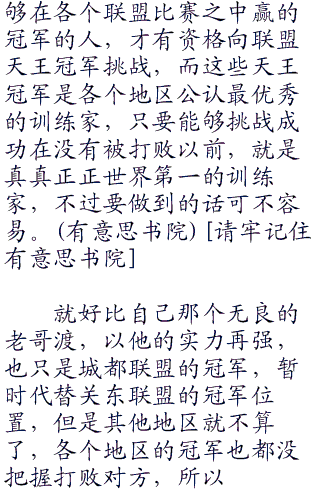 够在各个联盟比赛之中赢的
冠军的人，才有资格向联盟
天王冠军挑战，而这些天王
冠军是各个地区公认最优秀
的训练家，只要能够挑战成
功在没有被打败以前，就是
真真正正世界第一的训练
家，不过要做到的话可不容
易。(有意思书院) [请牢记住
有意思书院]
就好比自己那个无良的
老哥渡，以他的实力再强，
也只是城都联盟的冠军，暂
时代替关东联盟的冠军位
置，但是其他地区就不算
了，各个地区的冠军也都没
把握打败对方，所以